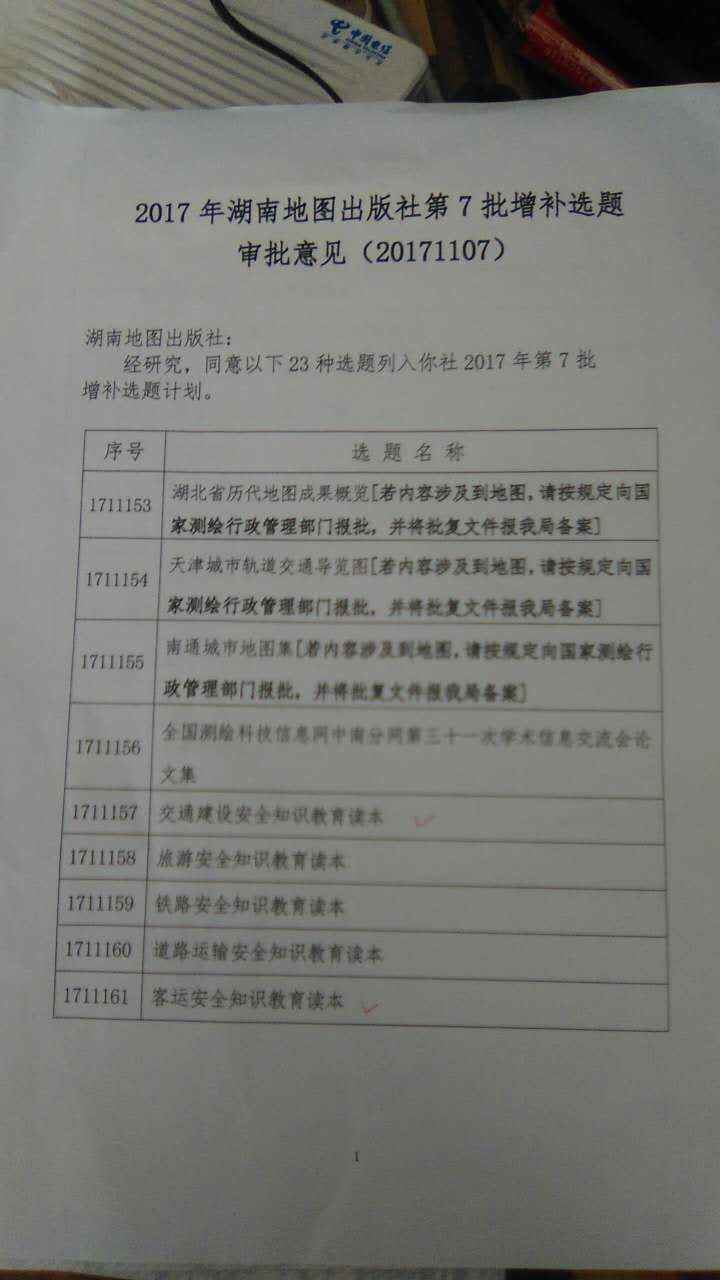 中国电信
2017 年湖南地图出版社第 7 批增补选题
审批意见（20171107）
湖南地图出版社：
经研究，同意以下 23 种选题列入你社 2017 年第 7 批
增补选题计划。
序号 选 题 名 称
1711153 湖北省历代地图成果概览[若内容涉及到地图，请按规定向国
家测绘行政管理部门报批，并将批复文件报我局备案]
1711154 天津城市轨道交通导览图[若内容涉及到地图，请按规定向国
家测绘行政管理部门报批，并将批复文件报我局备案]
1711155 南通城市地图集[若内容涉及到地图，请按规定向国家测绘行
政管理部门报批，并将批复文件报我局备案]
1711156 全国测绘科技信息网中南分网第三十一次学术信息交流会论
文集
1711157 交通建设安全知识教育读本
1711158 旅游安全知识教育读本
1711159 铁路安全知识教育读本
1711160 道路运输安全知识教育读本
1711161 客运安全知识教育读本
1